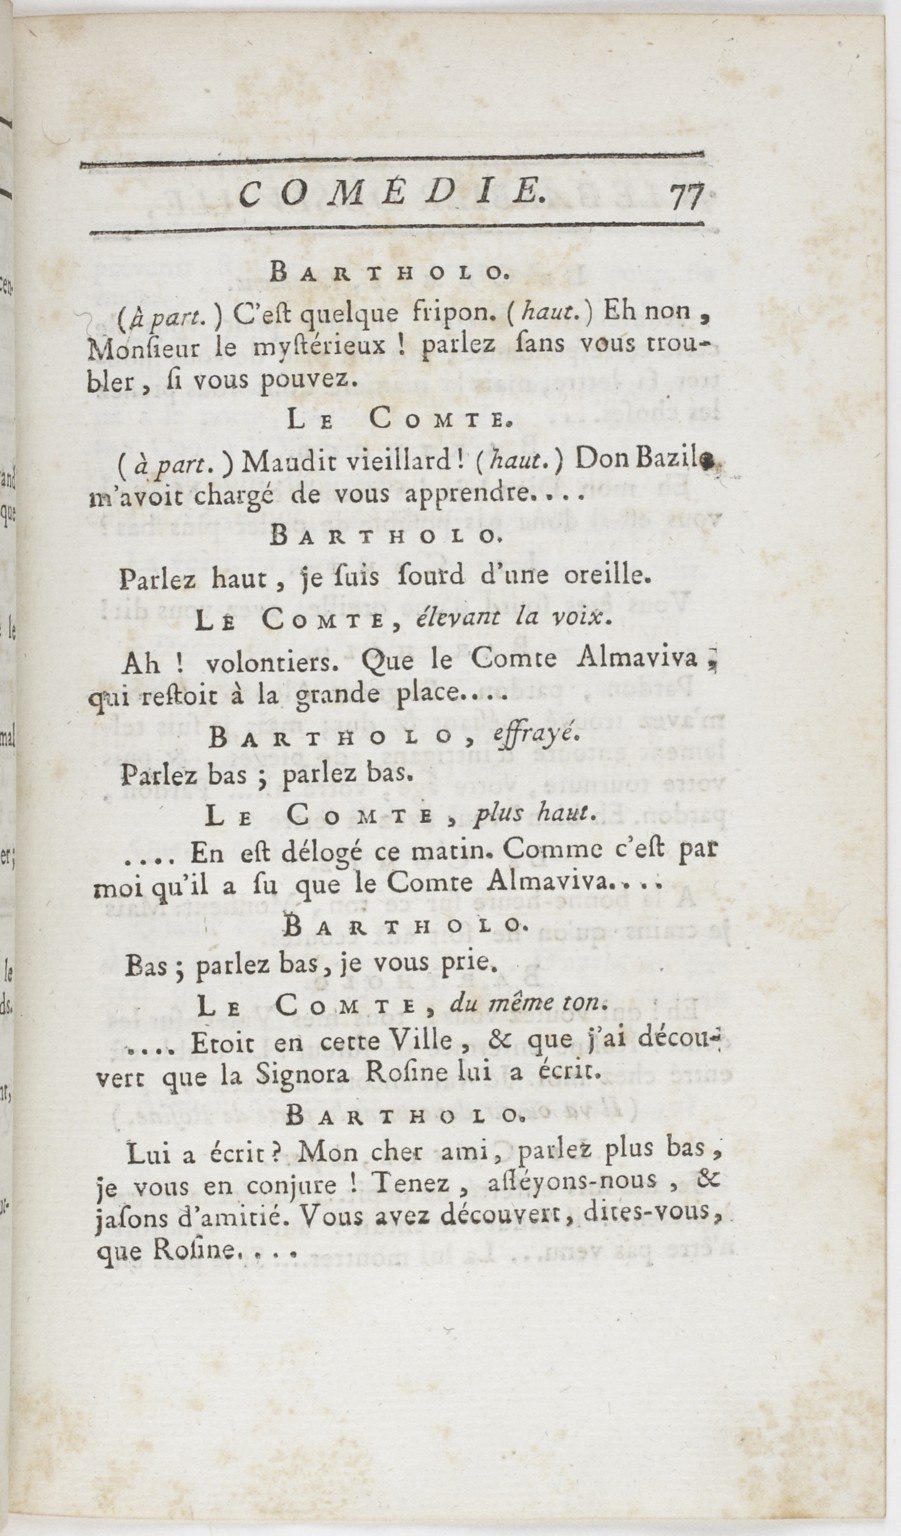 COMÉDIE. 77
BARTHOLO.
(à part.) C'eſt quelque fripon. (haut.) Eh non,
Monſieur le myſtérieux ! parlez ſans vous trou-
bler, ſi vous pouvez.
LE COMTE.
(à part.) Maudit vieillard! (haut.) Don Bazile
m'avoit chargé de vous apprendre....
BARTHOLO.
Parlez haut, je ſuis ſourd d'une oreille.
LE COMTE, élevant la voix.
Ah ! volontiers. Que le Comte Almaviva,
qui reſtoit à la grande place....
BARTHOLO, effrayé.
Parlez bas ; parlez bas.
LE COMTE, plus haut.
.... En eſt délogé ce matin. Comme c'eſt par
moi qu'il a ſu que le Comte Almaviva....
BARTHOLO.
Bas ; parlez bas, je vous prie.
LE COMTE, du même ton.
.... Etoit en cette Ville, & que j'ai décou-
vert que la Signora Roſine lui a écrit.
BARTHOLO.
Lui a écrit? Mon cher ami, parlez plus bas,
je vous en conjure ! Tenez, aſſéyons-nous, &
jaſons d'amitié. Vous avez découvert, dites-vous,
que Roſine....